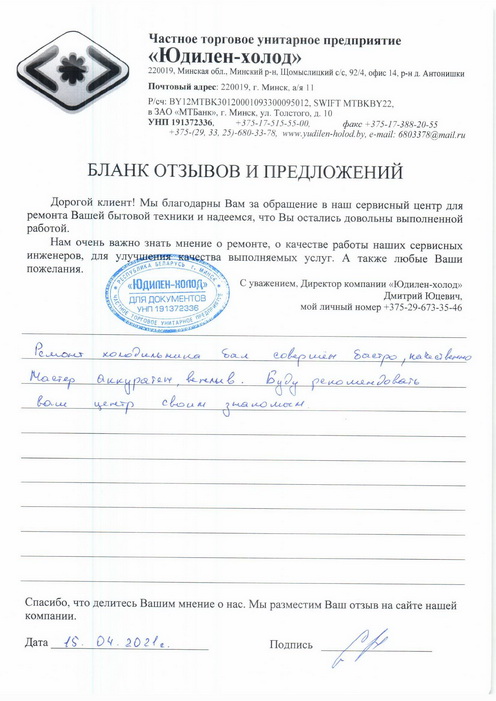 Частное торговое унитарное предприятие
«Юдилен-холод»
220019, Минская обл., Минский р-н, Щомыслицкий с/с, 92/4, офис 14, р-н д. Антонишки
Почтовый адрес: 220019, г. Минск, а/я 11
Р/сч: BY12MTBK30120001093300095012, SWIFT MTBKBY22,
в ЗАО «МТБанк», г. Минск, ул. Толстого, д. 10
УНП 191372336. +375-17-515-55-00, факс +375-17-388-20-55
+375-(29, 33, 25)-680-33-78, www.yudilen-holod.by, e-mail: 6803378@mail.ru
БЛАНК ОТЗЫВОВ И ПРЕДЛОЖЕНИЙ
Дорогой клиент! Мы благодарны Вам за обращение в наш сервисный центр для
ремонта Вашей бытовой техники и надеемся, что Вы остались довольны выполненной
работой.
Нам очень важно знать мнение о ремонте, о качестве работы наших сервисных
инженеров, для улучшения качества выполняемых услуг. А также любые Ваши
пожелания.
РЕСПУБЛИКА БЕЛАРУСЬ Г. МИНСК
«ЮДИЛЕН-ХОЛОД»
ДЛЯ ДОКУМЕНТОВ
УНП 191372336
ЧАСТНОЕ ТОРГОВОЕ УНИТАРНОЕ ПРЕДПРИЯТИЕ
С уважением. Директор компании «Юдилен-холод»
Дмитрий Юцевич,
мой личный номер +375-29-673-35-46
Ремонт холодильника был совершён быстро, качественно
Мастер аккуратен, вежлив. Буду рекомендовать
ваш центр своим знакомым
Спасибо, что делитесь Вашим мнение о нас. Мы разместим Ваш отзыв на сайте нашей
компании.
Дата 15. 04. 2021г. Подпись